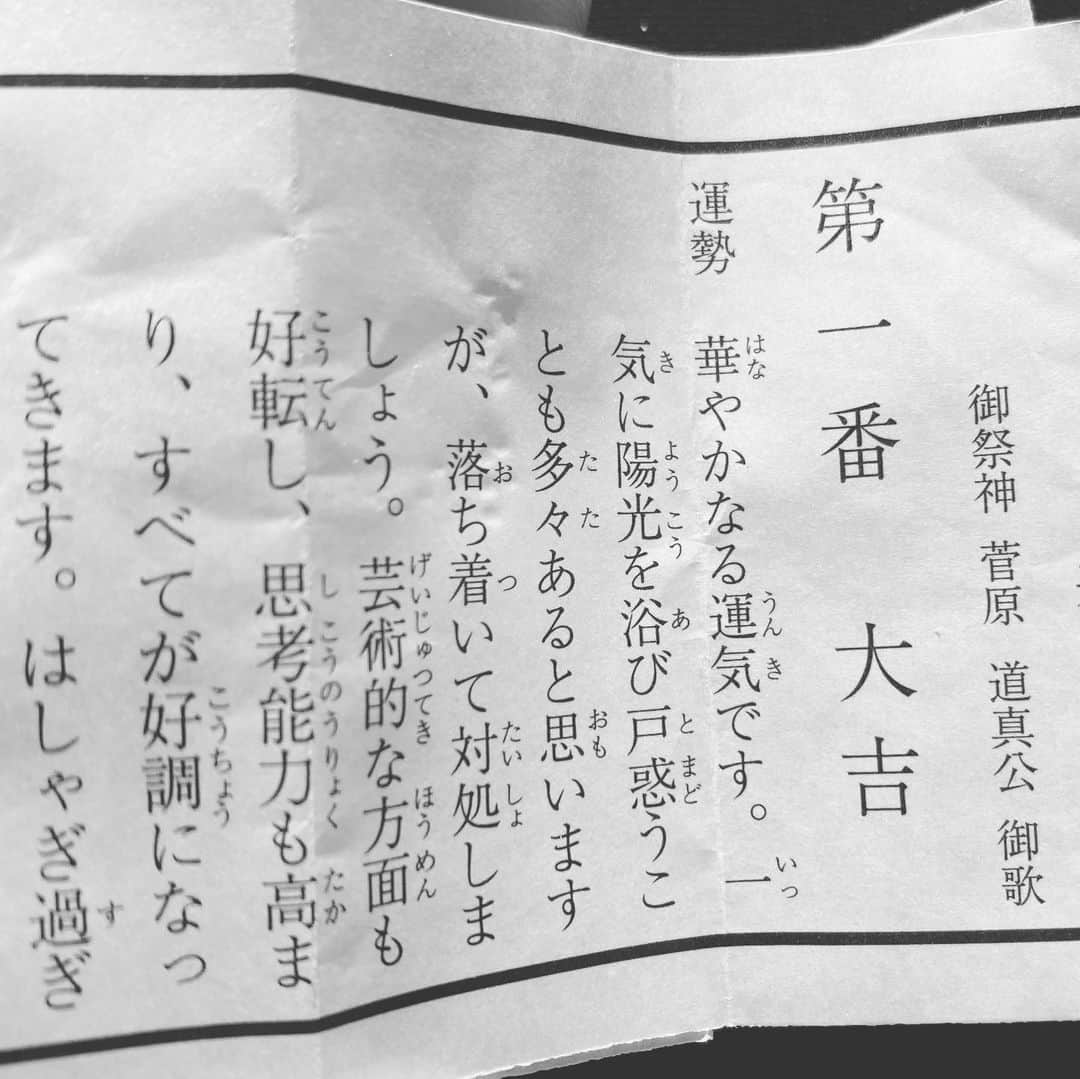 御祭神 菅原 道真公 御歌
第一番 大吉
運勢
華やかなる運気です。一
気に陽光を浴び戸惑うこ
とも多々あると思います
が、落ち着いて対処しま
しょう。芸術的な方面も
好転し、思考能力も高ま
り、すべてが好調になっ
てきます。はしゃぎ過ぎ